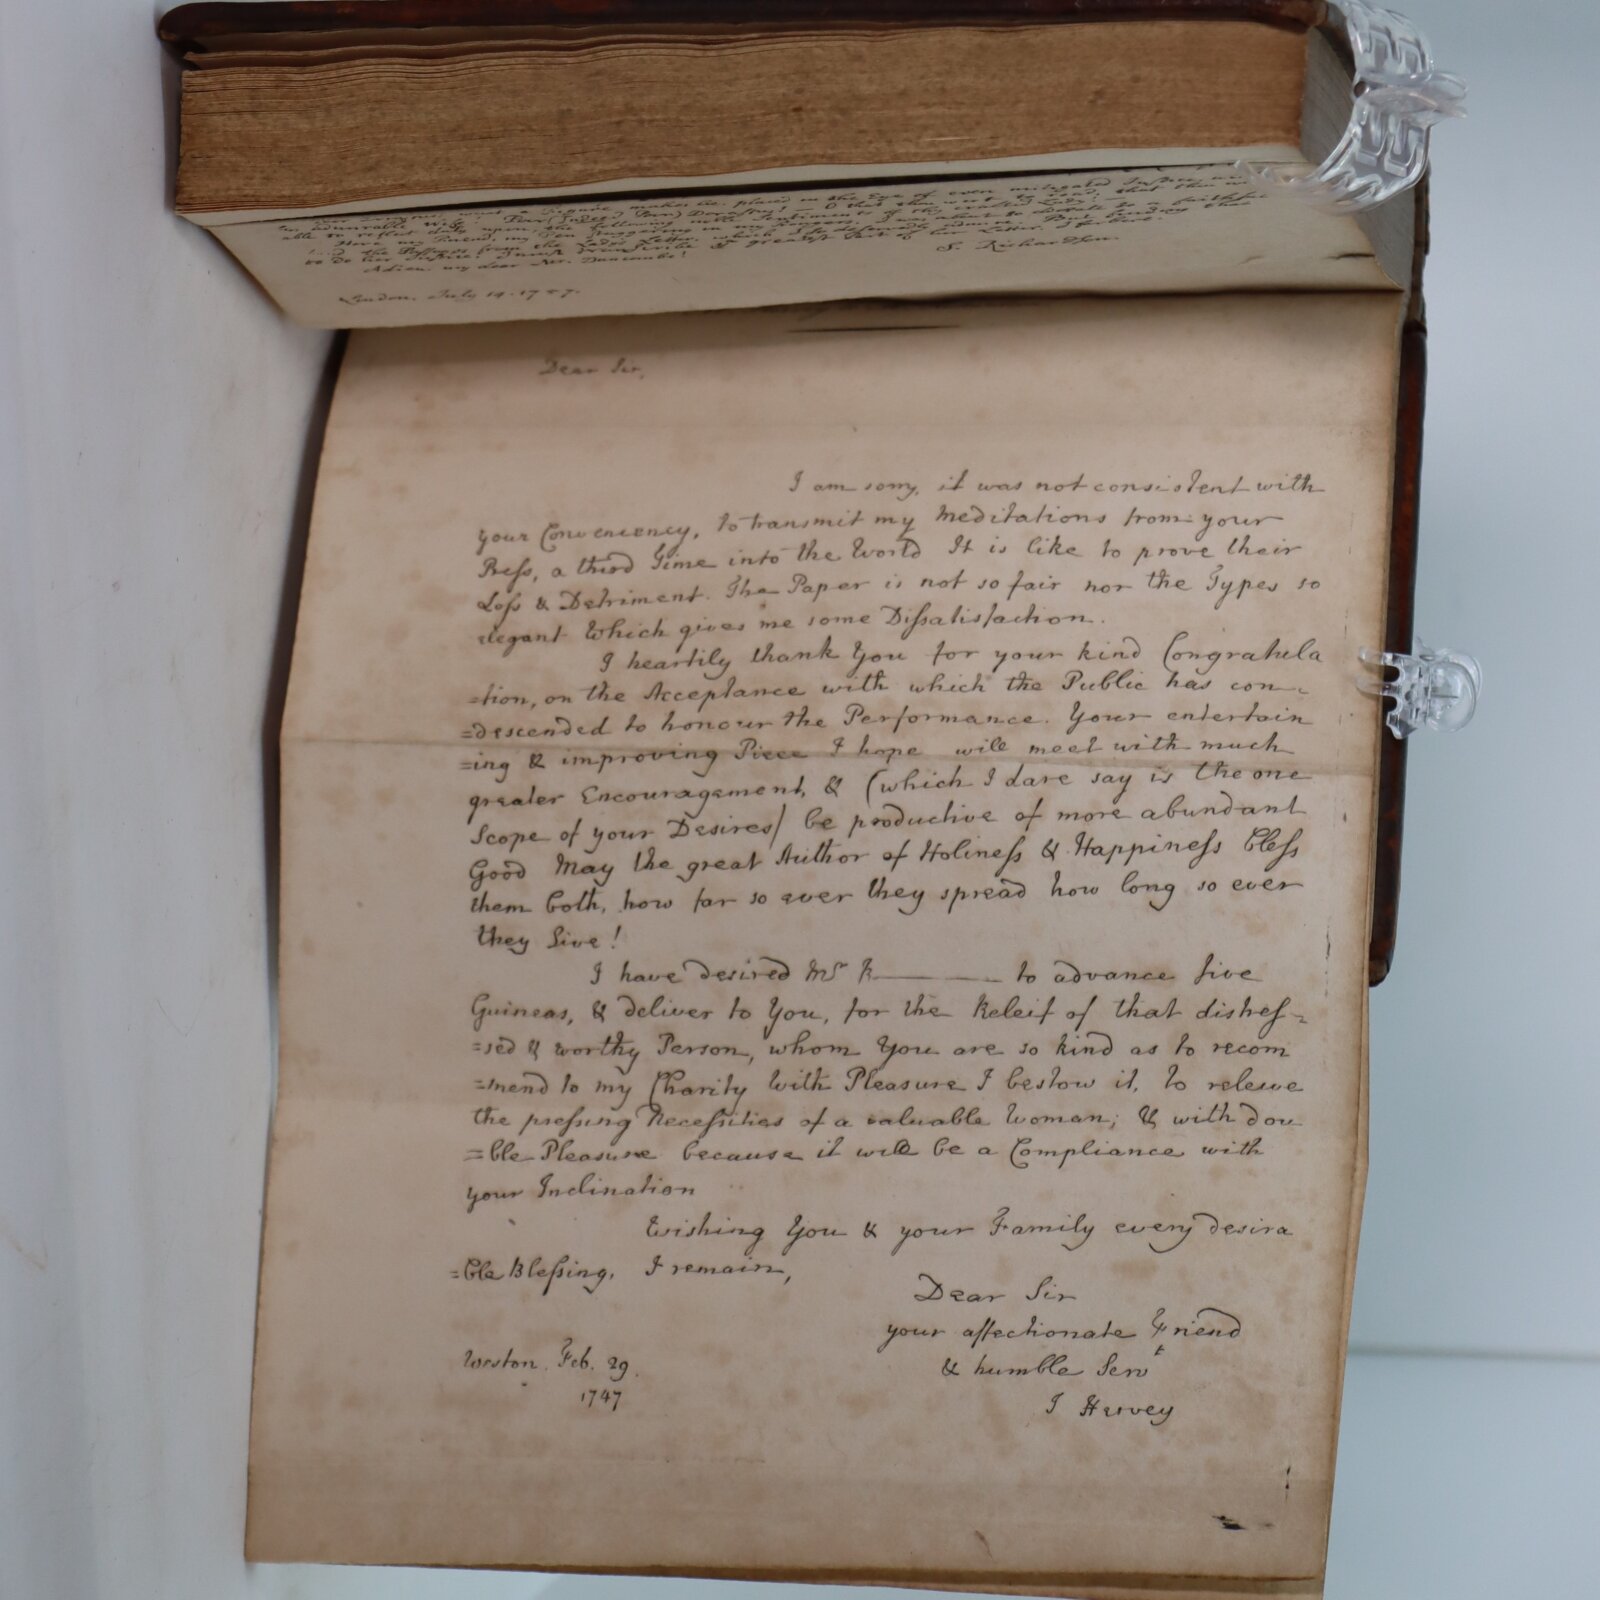 a Figure makes he, placed in the Eye of even mitigated Justice
an admirable Wife
able to reflect duly upon, the following noble Sentiments of thy
Here my Friend, my Pen struggling in my
the Lady's Letter, which
to do her Justice I must transcribe the greatest Part of her Letter. Therefore
Adieu. my dear Mr. Duncombe!
S. Richardson.
London, July 19. 1757.
Dear Sir,
I am sorry, it was not consistent with
your Conveniency, to transmit my Meditations from your
Preſs, a third Time into the World It is like to prove their
Loſs & Detriment. The Paper is not so fair nor the Types so
elegant Which gives me some Diſsatisfaction.
I heartily thank You for your kind Congratula
=tion, on the Acceptance with which the Public has con=
=descended to honour the Performance. Your entertain
=ing & improving Piece I hope will meet with much
greater Encouragement, & (which I dare say is the one
Scope of your Desires) be productive of more abundant
Good May the great Author of Holineſs & Happineſs bleſs
them both, how far so ever they spread how long so ever
they live!
I have desired Mr K——— to advance five
Guineas, & deliver to You, for the Releif of that distreſ=
=sed & worthy Person, whom You are so kind as to recom
=mend to my Charity With Pleasure I bestow it, to releive
the preſsing Neceſsities of a valuable Woman; & with dou
=ble Pleasure because it will be a Compliance with
your Inclination
Wishing You & your Family every desira
=ble Bleſsing, I remain,
Dear Sir
your affectionate Friend
& humble Servt
J Hervey
Weston. Feb. 29.
1747